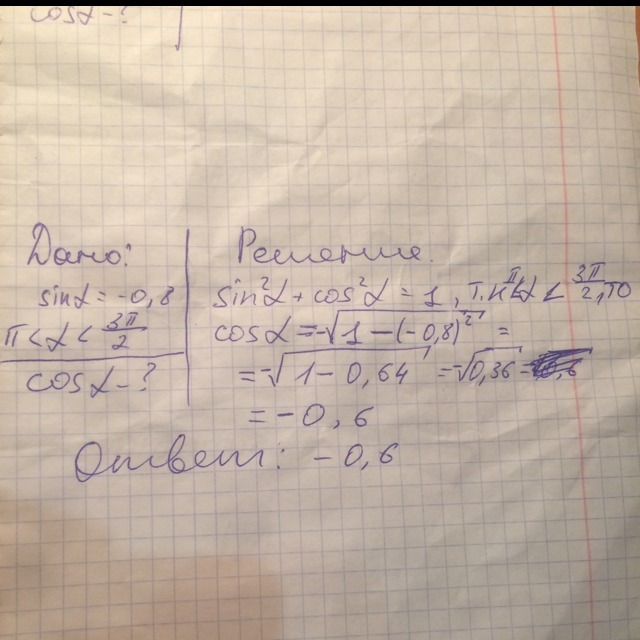 cosα - ?
Дано:
sinα = -0,8
π < α < 3π/2
cosα - ?
Решение.
sin²α + cos²α = 1, т.к π<α < 3π/2, то
cosα = -√(1 - (-0,8)²) =
= -√(1 - 0,64) = -√0,36 =
= -0,6
Ответ: -0,6